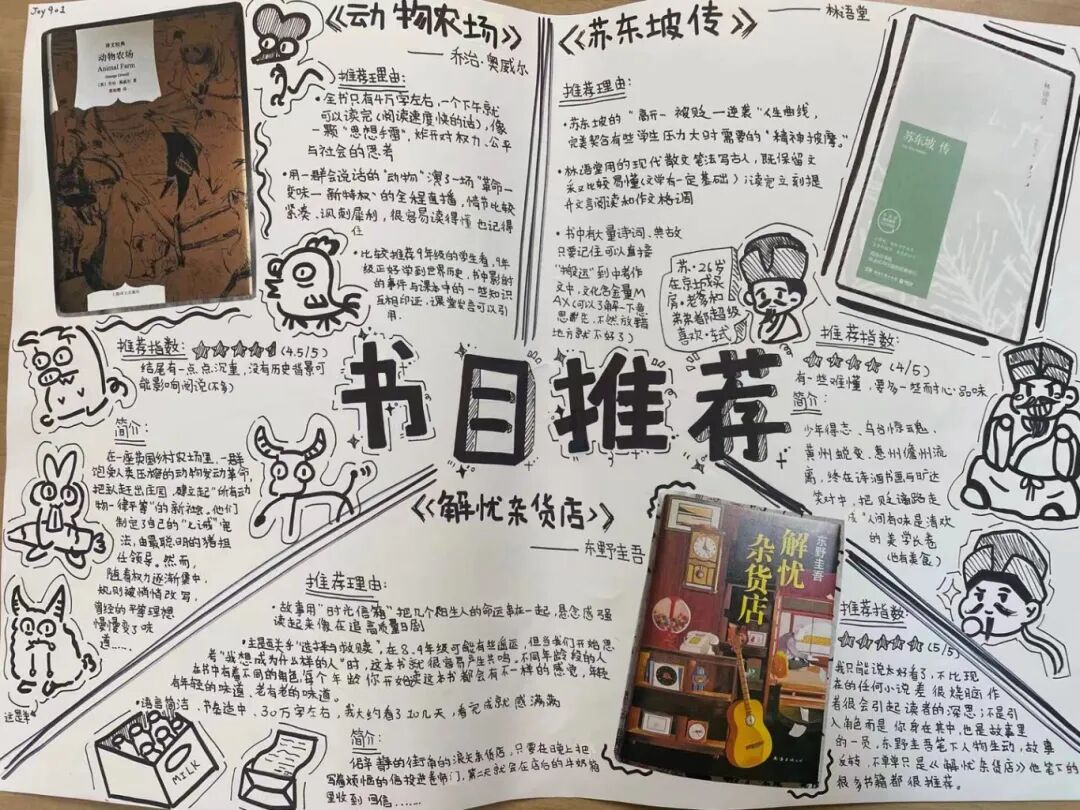 Joy 902
《动物农场》
——乔治·奥威尔
译文经典
动物农场
Animal Farm
George Orwell
上海译文出版社
推荐理由:
·全书只有4万字左右,一个下午就
可以读完(阅读速度快的话),像
一颗“思想手雷”,炸开对权力、公平
与社会的思考
·用一群会说话的“动物”演了一场“革命—
变味—新特权”的全程直播,情节比较
紧凑、讽刺犀利,很容易读得懂也记得
住
·比较推荐9年级的学生看,9年
级正好学到世界历史,书中影射
的事件与课本中的一些知识
互相印证,课堂发言可以引
用.
推荐指数:
(4.5/5)
结尾有一点点沉重,没有历史背景可
能影响阅读(不多)
简介:
在一座英国乡村农场里,一群
饱受人类压榨的动物发动革命,
把人赶出庄园,建立起“所有动
物一律平等”的新社会.他们
制定了自己的“七诫”宪
法,由最聪明的猪担
任领导。然而,
随着权力逐渐集中,
规则被悄悄改写,
曾经的平等理想
慢慢变了味
道……
这是羊
《苏东坡传》
——林语堂
推荐理由:
·苏东坡的“高开—被贬—逆袭”人生曲线,
完美契合有些学生压力大时需要的“精神按摩。”
·林语堂用的现代散文笔法写古人,既保留文
采又比较易懂(文学有一定基础);读完立刻提
升文言阅读和作文格调
·书中有大量诗词、典故
只要记住可以直接
“搬运”到中考作
文中,文化含金量M
AX(可以了解一下意
思哪些,不然放错
地方就不好了)
苏·26岁
在京城买
房·老爹和
弟弟都超级
喜欢·轼
林语堂
苏东坡传
推荐指数:
(4/5)
有一些难懂,要多一些耐心品味
简介:
少年得志、乌台惊魂、
黄州蜕变、惠州儋州流
离,终在诗酒书画与旷达
笑对中,把贬谪路走
成“人间有味是清欢”
的美学长卷
(也有美食)
书目推荐
《解忧杂货店》
——东野圭吾
推荐理由:
·故事用“时光信箱”把几个陌生人的命运串在一起,悬念感强
读起来像在追高质量日剧
·主题更关乎“选择与救赎”,在8、9年级可能有些遥远,但当我们开始思
考“我想成为什么样的人”时,这本书就很容易产生共鸣,不同年龄段的人
在书中有着不同的角色,每个年龄你开始读这本书都会有不一样的感觉,年轻
有年轻的味道,老有老的味道。
·语言简洁、节奏适中、30万字左右,我大约看了10几天,看完成就感满满
MILK
简介:
僻静的街角的浪矢杂货店,只要在晚上把
写着烦恼的信投进卷帘门,第二天就会在店后的牛奶箱
里收到回信……
东野圭吾
解忧
杂货店
南海出版公司
推荐指数:
(5/5)
我只能说太好看了,不比现
在的任何小说差很烧脑,作
者很会引起读者的深思;不是引
入角色而是你身在其中,也是故事里
的一员,东野圭吾笔下人物生动,故事
反转,不单单只是《解忧杂货店》他笔下的
很多书籍都很推荐。